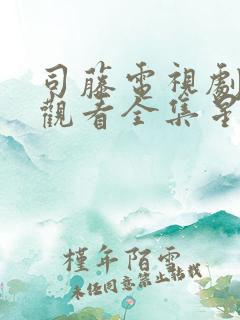 司藤電視劇
觀看全集星
槿年陌雪
未經同意禁止轉載